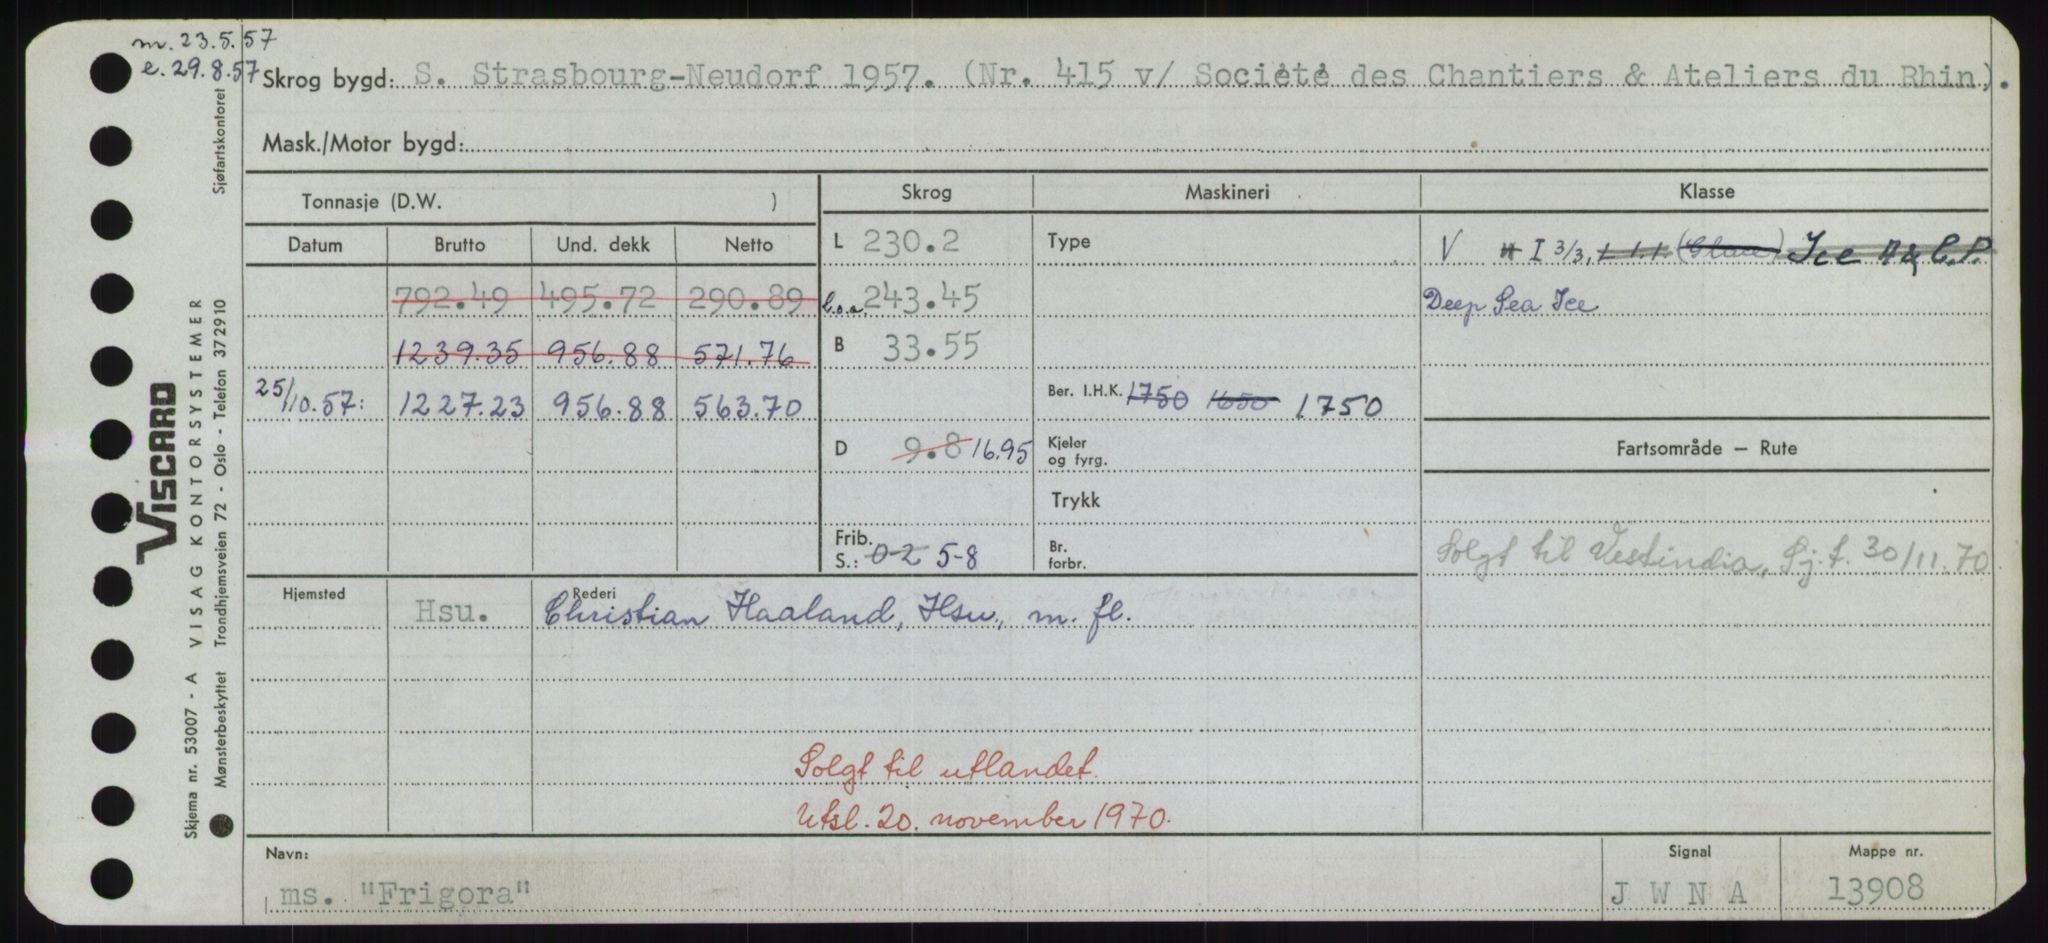 m. 23.5.57
e. 29.8.57
Skrog bygd: S. Strasbourg-Neudorf 1957. (Nr. 415 v/ Sociètè des Chantiers & Ateliers du Rhin).
Mask./Motor bygd:
Tonnasje (D.W. ) Skrog Maskineri Klasse
Datum Brutto Und. dekk Netto L 230.2 Type V I 3/3, Ice A & C.P.
792.49 495.72 290.89 L.o.a. 243.45 Deep Sea Ice
1239.35 956.88 571.76 B 33.55
25/10.57: 1227.23 956.88 563.70 Ber. I.H.K. 1750 1650 1750
D 9.8 16.95 Kjeler og fyrg. Fartsområde — Rute
Trykk
Frib. S.: 0-2 5-8 Br. forbr. Solgt til Vestindia, Sj.f. 30/11.70
Hjemsted Hsu. Rederi Christian Haaland, Hsu., m. fl.
Solgt til utlandet.
Utsl. 20. november 1970.
Navn: Signal Mappe nr.
ms. "Frigora" J W N A 13908
VISCARD
Skjema nr. 53007 - A VISAG KONTORSYSTEMER
Mønsterbeskyttet Trondhjemsveien 72 - Oslo - Telefon 372910 Sjøfartskontoret